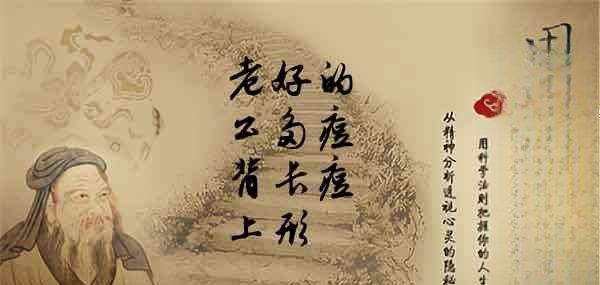 老公背上
好多长形
的痘痘
用科学法则把握你的人生
从精神分析透视心灵的隐秘